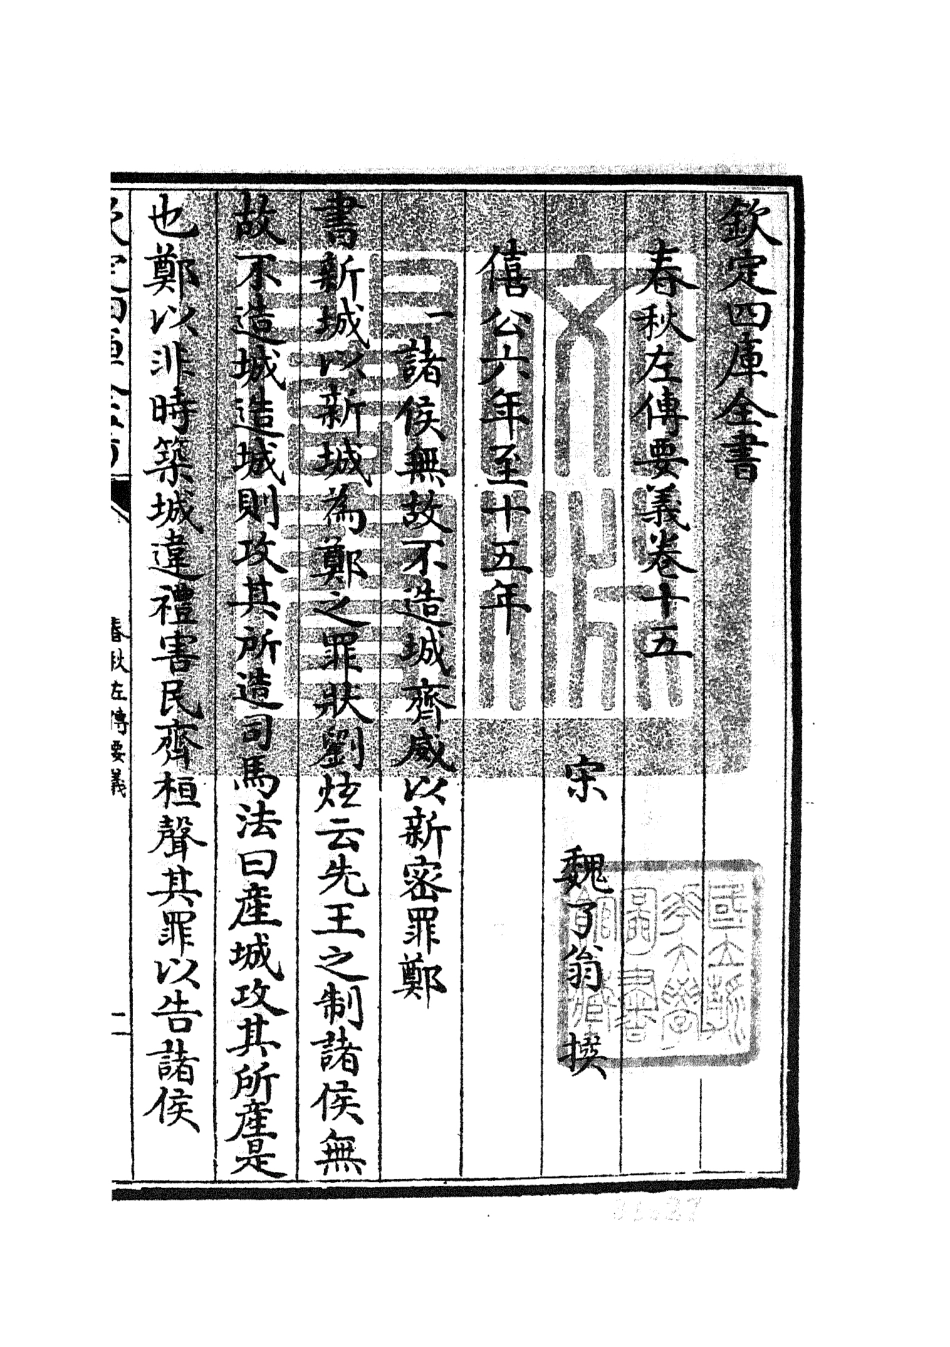 欽定四庫全書
春秋左傳要義卷十五
宋　魏了翁　撰
僖公六年至十五年
一諸侯無故不造城齊威以新密罪鄭
書新城以新城為鄭之罪狀劉炫云先王之制諸侯無
故不造城造城則攻其所造司馬法曰産城攻其所産是
也鄭以非時築城違禮害民齊桓聲其罪以告諸侯
欽定四庫全書
春秋左傳要義